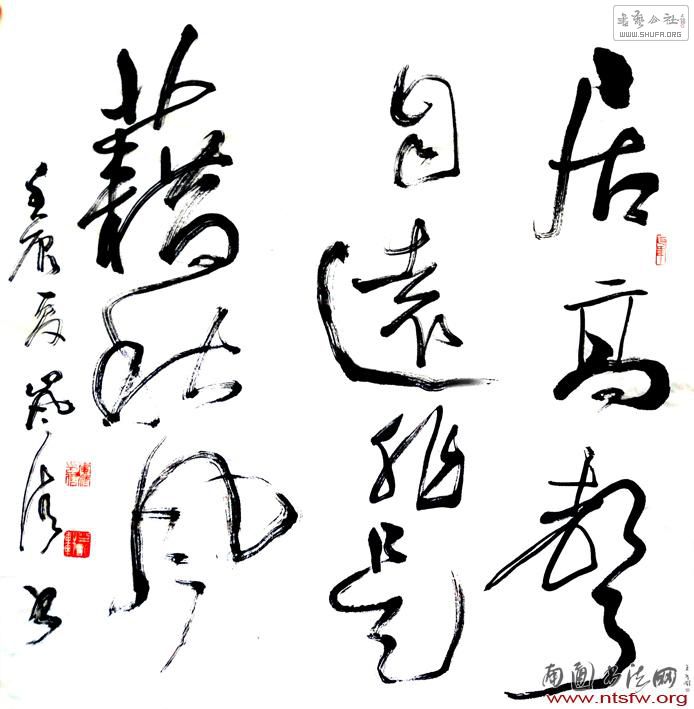 居高聲
自遠非是
藉秋風
壬辰夏嵐清书
书艺公社
WWW.SHUFA.ORG
南通书法网
www.ntsfw.org